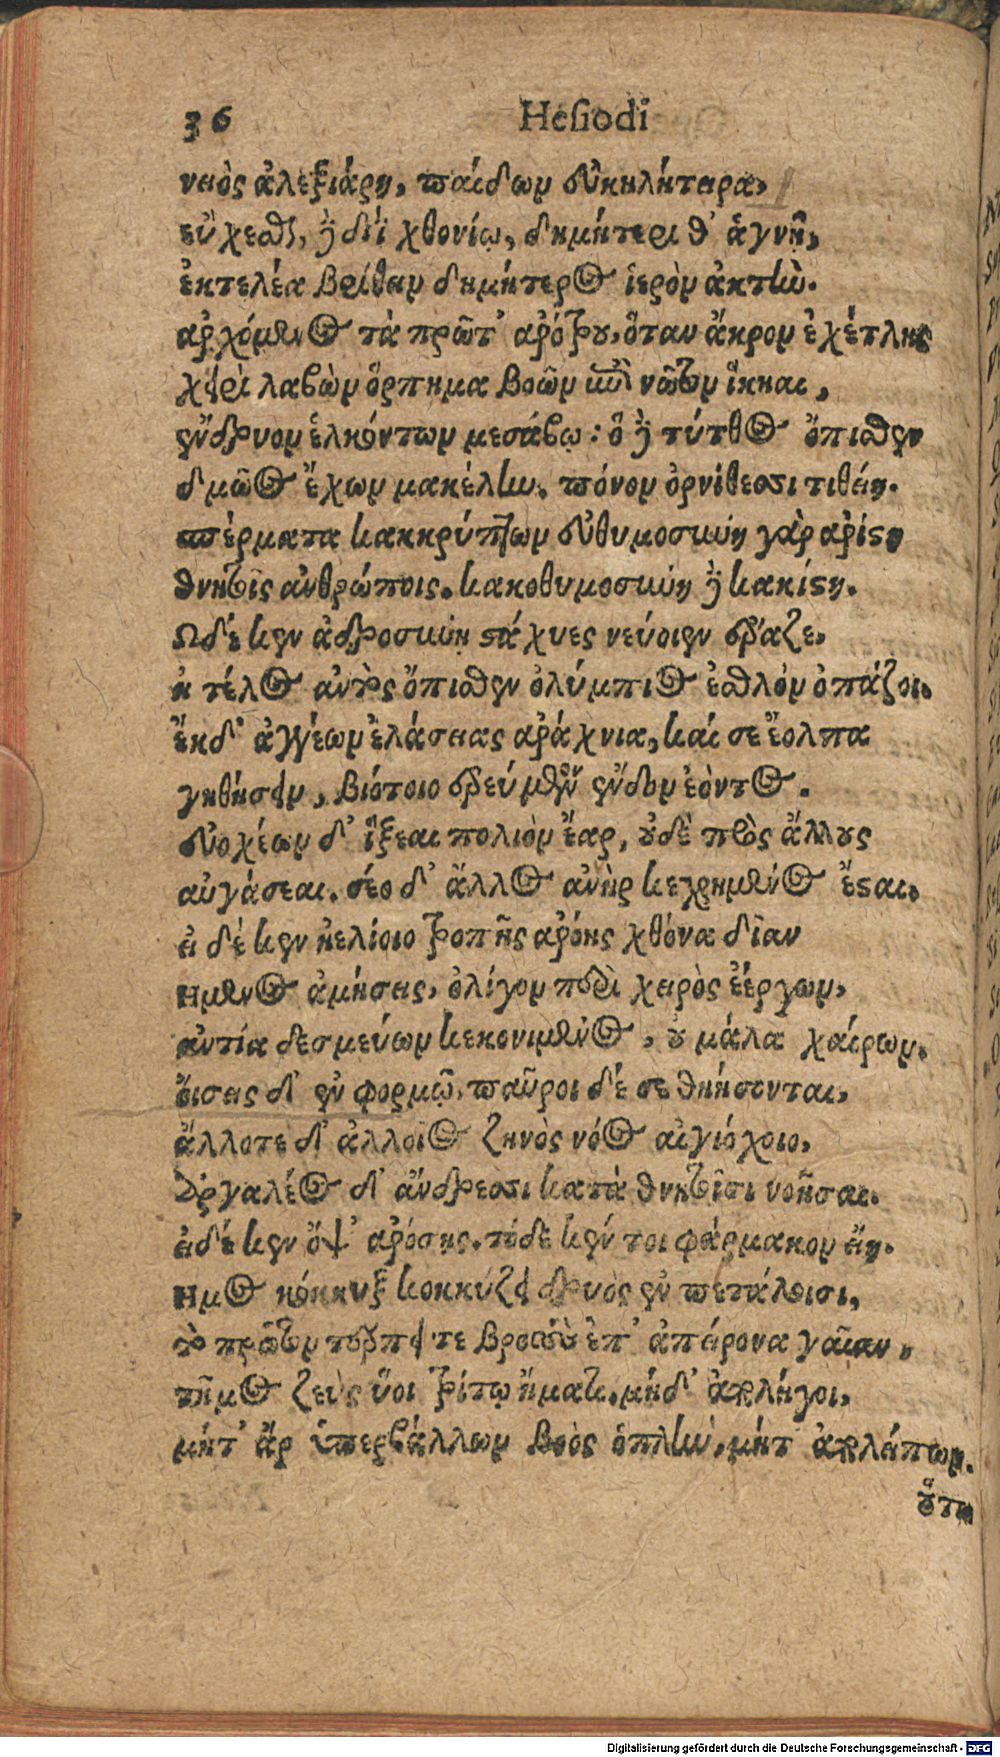 36 Hesiodi
νειὸς ἀλεξιάρη, παίδων εὐκηλήτειρα,
εὔχεσθαι δὲ διῒ χθονίῳ, δημήτερι θ' ἁγνῇ,
ἐκτελέα βρίθειν δημήτερος ἱερὸν ἀκτίω.
ἀρχόμενος τὰ πρῶτ' ἀρότρου, ὅταν ἄκρον ἐχέτλης
χειρὶ λαβὼν ὅρπημα βοῶν ἐπὶ νῶτον ἵκηαι,
ἔνδρυον ἑλκόντων μεσάβῳ: ὁ δὲ τύτθος ὄπισθεν
δμῶος ἔχων μακέλην. πόνον ὀρνίθεσσι τιθείη.
σπέρματα κακκρύπτων εὐθυμοσύνη γὰρ ἀρίστη
θνητοῖς ἀνθρώποις. κακοθυμοσύνη δὲ κακίστη.
Ωδέ κεν ἁδροσύνῃ στάχυες νεύοιεν ἔραζε,
εἰ τέλος αὐτὸς ὄπισθεν ὀλύμπιος ἐσθλὸν ὀπάζοι.
ἔκ δ' ἀγγέων ἐλάσειας ἀράχνια, καί σε ἔολπα
γηθήσειν, βιότοιο ἐρεύμενον ἔνδον ἐόντος.
εὐοχέων δ' ἵξεαι πολιὸν ἔαρ, οὐδὲ πρὸς ἄλλους
αὐγάσεαι. σέο δ' ἄλλος ἀνὴρ κεχρημένος ἔσται.
εἰ δέ κεν ἠελίοιο τροπῆς ἀρόῃς χθόνα δῖαν
Ημενος ἀμήσεις, ὀλίγον περὶ χειρὸς ἐέργων,
ἀντία δεσμεύων κεκονιμένος, οὐ μάλα χαίρων.
οἴσεις δ' ἐν φορμῷ, παῦροι δέ σε θηήσονται,
ἄλλοτε δ' ἀλλοῖος ζηνὸς νόος αἰγιόχοιο,
Αργαλέος δ' ἄνδρεσσι κατὰ θνητοῖσι νοῆσαι.
εἰ δέ κεν ὄψ' ἀρόσῃς. τόδε κέν τοι φάρμακον εἴη.
Ημος κόκκυξ κοκκύζει δρυὸς ἐν πετάλοισι,
τὸ πρῶτον τέρπει τε βροτοὺς ἐπ' ἀπείρονα γαῖαν,
τῆμος ζεὺς ὕοι τρίτῳ ἤματι. μήδ' ἀπολήγοι,
μήτ' ἂρ ὑπερβάλλων βοὸς ὁπλὴν, μήτ' ἀπολείπων.
οὕτω
Digitalisierung gefördert durch die Deutsche Forschungsgemeinschaft - DFG